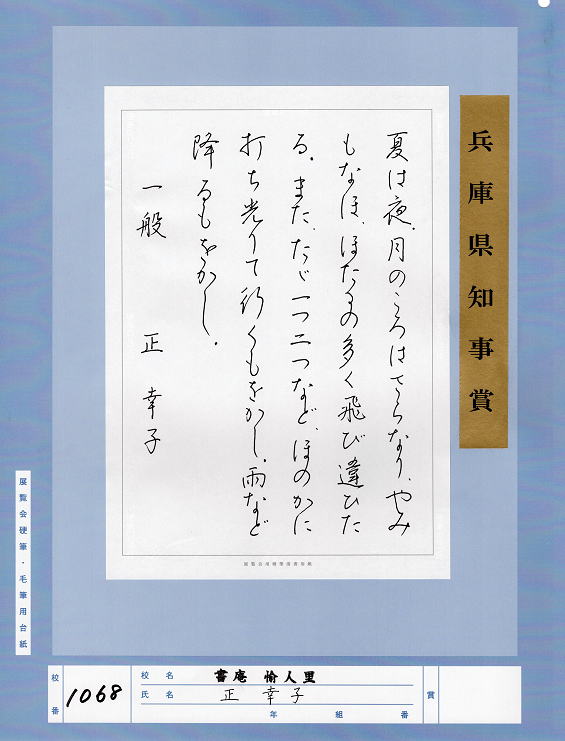 兵庫県知事賞
夏は夜。月のころはさらなり、やみ
もなほ、ほたるの多く飛び違ひた
る。また、ただ一つ二つなど、ほのかに
打ち光りて行くもをかし。雨など
降るもをかし。
一般 正 幸子
展覧会用硬筆清書用紙
展覧会硬筆・毛筆用台紙
校番 1068
校名 書庵 愉人里
氏名 正 幸子
年 組 番
賞